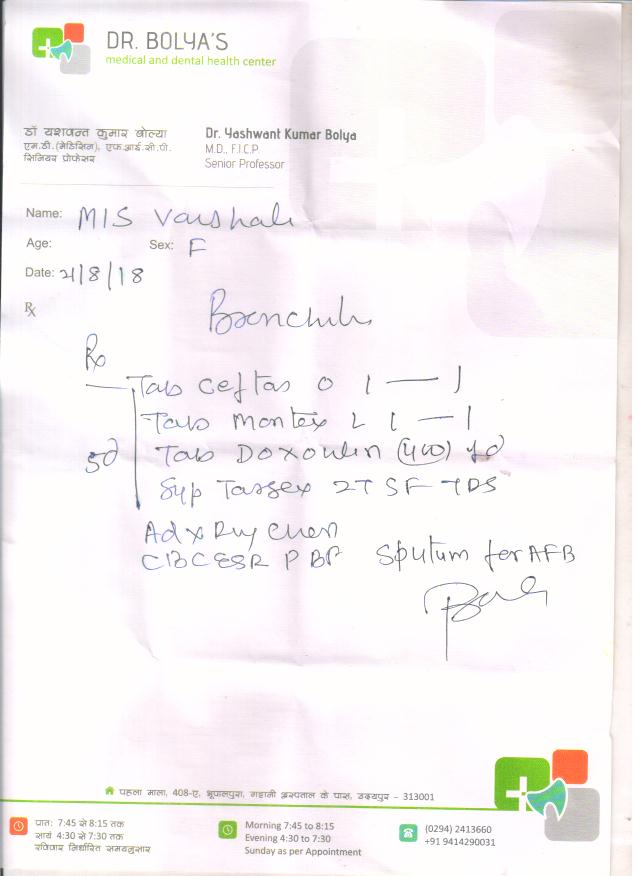 DR. BOLYA'S
medical and dental health center
डॉ यशवन्त कुमार बोल्या
एम.डी.(मेडिसिन), एफ.आई.सी.पी.
सिनियर प्रोफेसर
Dr. Yashwant Kumar Bolya
M.D., F.I.C.P.
Senior Professor
Name: MIS Vaishali
Age: Sex: F
Date: 2/8/18
Rx
Rx
Tab Ceftas O 1 — 1
Tab Montex L 1 — 1
5d Tab Doxoulin (400)
Syp Tassex 2T SF TDS
Adx Ray Chest
CBC ESR PBF Sputum for AFB
पहला माला, 408-ए, भूपालपुरा, गट्टानी अस्पताल के पास, उदयपुर - 313001
प्रातः 7:45 से 8:15 तक
सायं 4:30 से 7:30 तक
रविवार निर्धारित समयनुसार
Morning 7:45 to 8:15
Evening 4:30 to 7:30
Sunday as per Appointment
(0294) 2413660
+91 9414290031